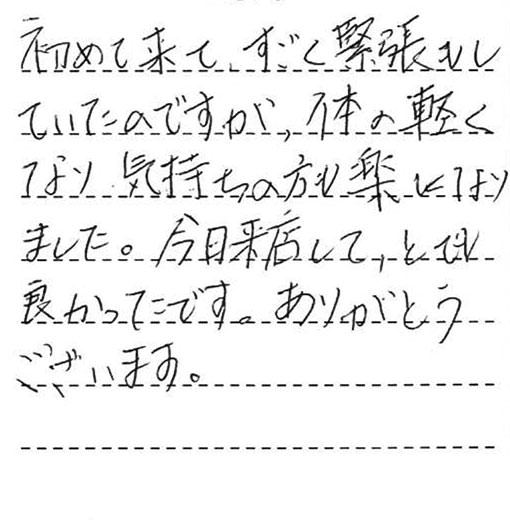 初めて来て、すごく緊張もし
ていたのですが、体の軽く
なり 気持ちの方も楽になり
ました。今日来店して、とても
良かったです。ありがとう
ございます。